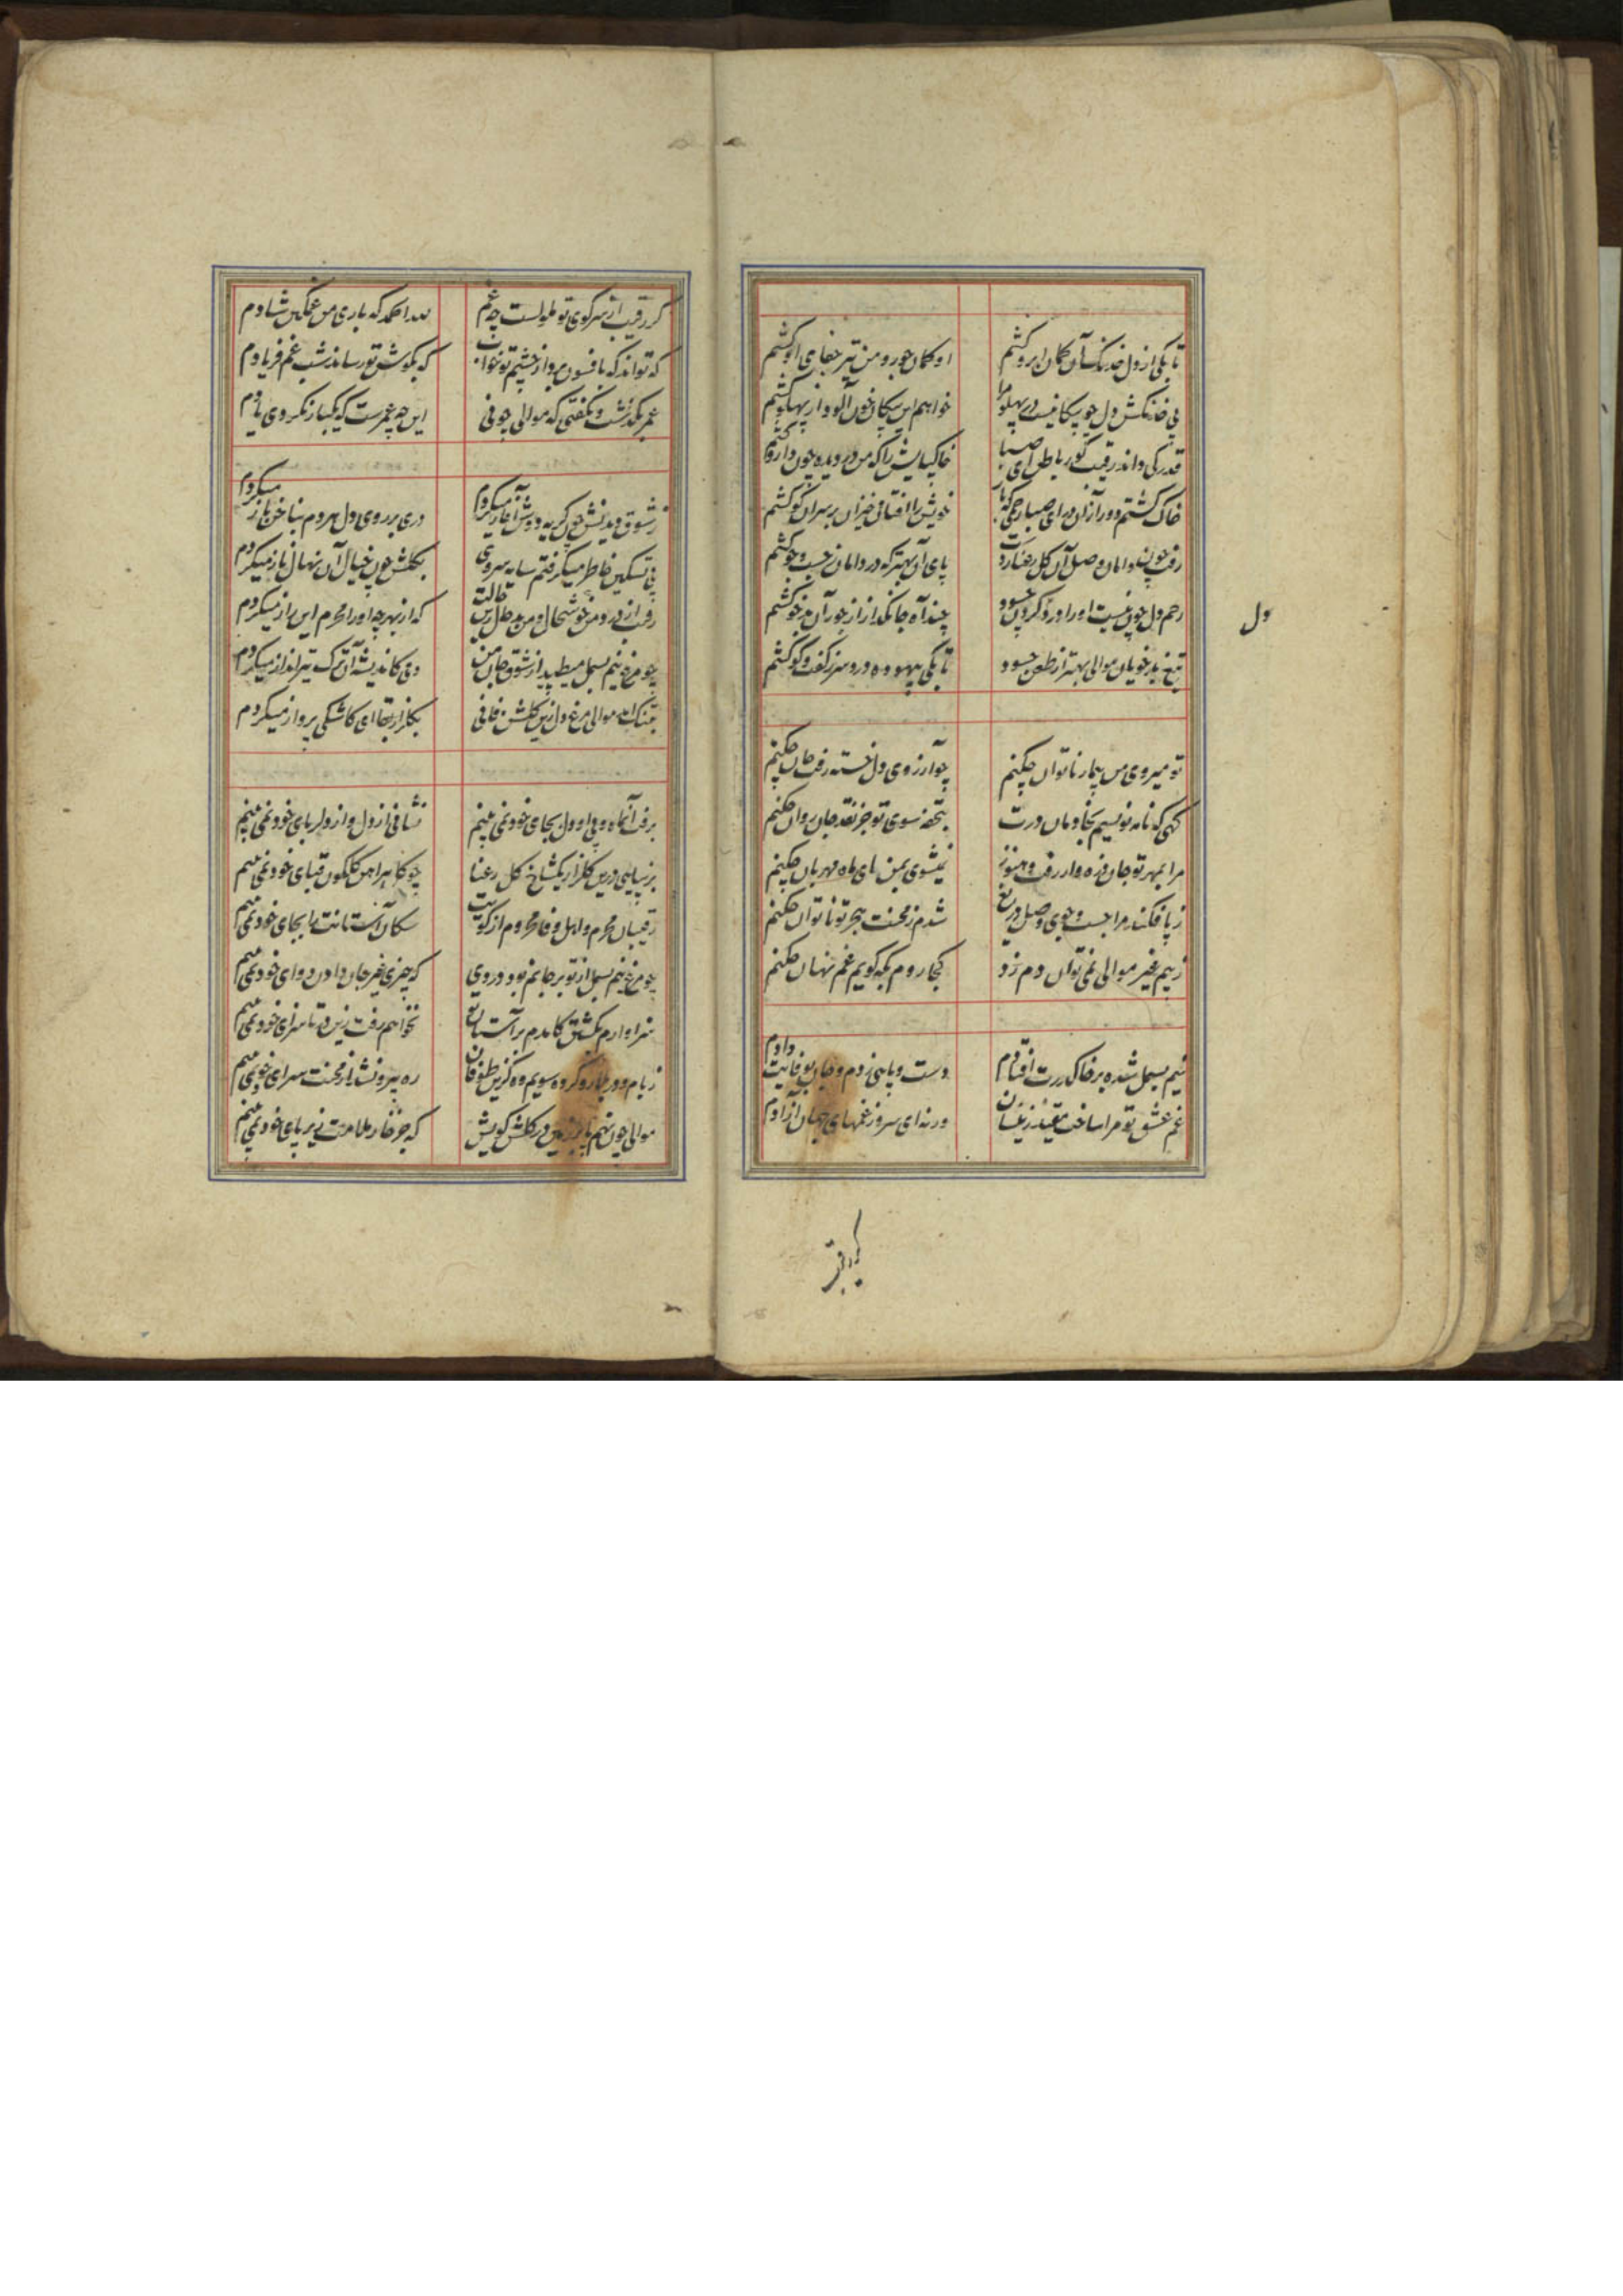 تا بکی از دل خدنک آن کمان ابرو کشم
او کمان جور و من تیر جفای او کشم
بی خدنکش دل چو پیکانیست در پهلو مرا
خواهم این پیکان خون آلود از پهلو کشم
قدر کی داند رقیب کور باطن ای صبا
خاکپایش را که من در دیده چون دارو کشم
خاک کشتم دور از آن در ای صبا رحمی که باز
خویش را افتان خیزان بر سر آن کو کشم
رفت چون دامان وصل آن کل رعنا ز دست
پای آن بهتر که در دامان جست و جو کشم
رحم دل چون نیست او را ورد کردون چسود
چند آه جانکداز از جور آن بدخو کشم
تیغ بدخویان موالی بهتر از طعن حسود
تا بکی بیهوده درد سر ز کفت و کو کشم
دل
تو میروی من بیمار ناتوان چکنم
چو آرزوی دل خسته رفت جان چکنم
کهی که نامه نویسم بخادمان درت
بتحفه سوی تو جز نقد جان روان چکنم
مرا بمهر تو جان ذره وار رفت و هنوز
نمیشوی بمن ای ماه مهربان چکنم
ز پا فکند مرا جست و جوی وصل دریغ
شدم ز محنت هجر تو ناتوان چکنم
ز بیم غیر موالی نمی توان دم زد
کجا روم بکه کویم غم نهان چکنم
نیم بسمل شده بر خاک درت افتادم
دست و پایی زدم و جان بوفایت دادم
غم عشق تو مرا ساخت مقید ز غمسان
ورنه ای سرو ز غمهای جهان آزادم
کر رقیب
کر رقیب از سر کوی تو ملولست چه غم
لله الحمد که باری من غمکین شادم
که تواند که بافسون برد از چشم تو خواب
که بکوش تو رساند شب غم فریادم
عمر بکذشت و نکفتی که موالی چونی
این چه عمرست که یکبار نکردی یادم
ز شوق دیدنش چون کریه دوش آغاز میکردم
دری بر روی دل هر دم بناخن باز میکردم
پی تسکین خاطر میکرفتم سایه سروی
بکلشن چون خیال آن نهال ناز میکردم
رقیب از درد من خوشحال و من بدحال زین حالت
که از بهر چه او را محرم این راز میکردم
چو مرغ نیم بسمل میطپید از شوق جان من
دمی کاندیشه آن ترک تیرانداز میکردم
بتنک آمد موالی مرغ دل زین کلشن فانی
بکلزار بقا ای کاشکی پرواز میکردم
برفت آنماه و بی او دل بجای خود نمی بینم
نشانی از دل و از دلربای خود نمی بینم
بزیبایی درین کلزار یکشاخ کل رعنا
چو کلپیراهن کلکون قبای خود نمی بینم
رقیبان محرم و اهل وفا محروم از کویت
سکان آستانت را بجای خود نمی بینم
چو مرغ نیم بسمل از تو بر جانم بود دردی
که چیزی غیر جان دادن دوای خود نمی بینم
سزاوارم بکشتن کامدم بر آستان تو
نخواهم رفت زین در تا سزای خود نمی بینم
ز بام و در بلا رو کرده سویم وه کزین طوفان
ره بیرونشد از محنت سرای خود نمی بینم
موالی چون نهم پا بر زمین در کلشن کویش
که جز خار ملامت زیر پای خود نمی بینم